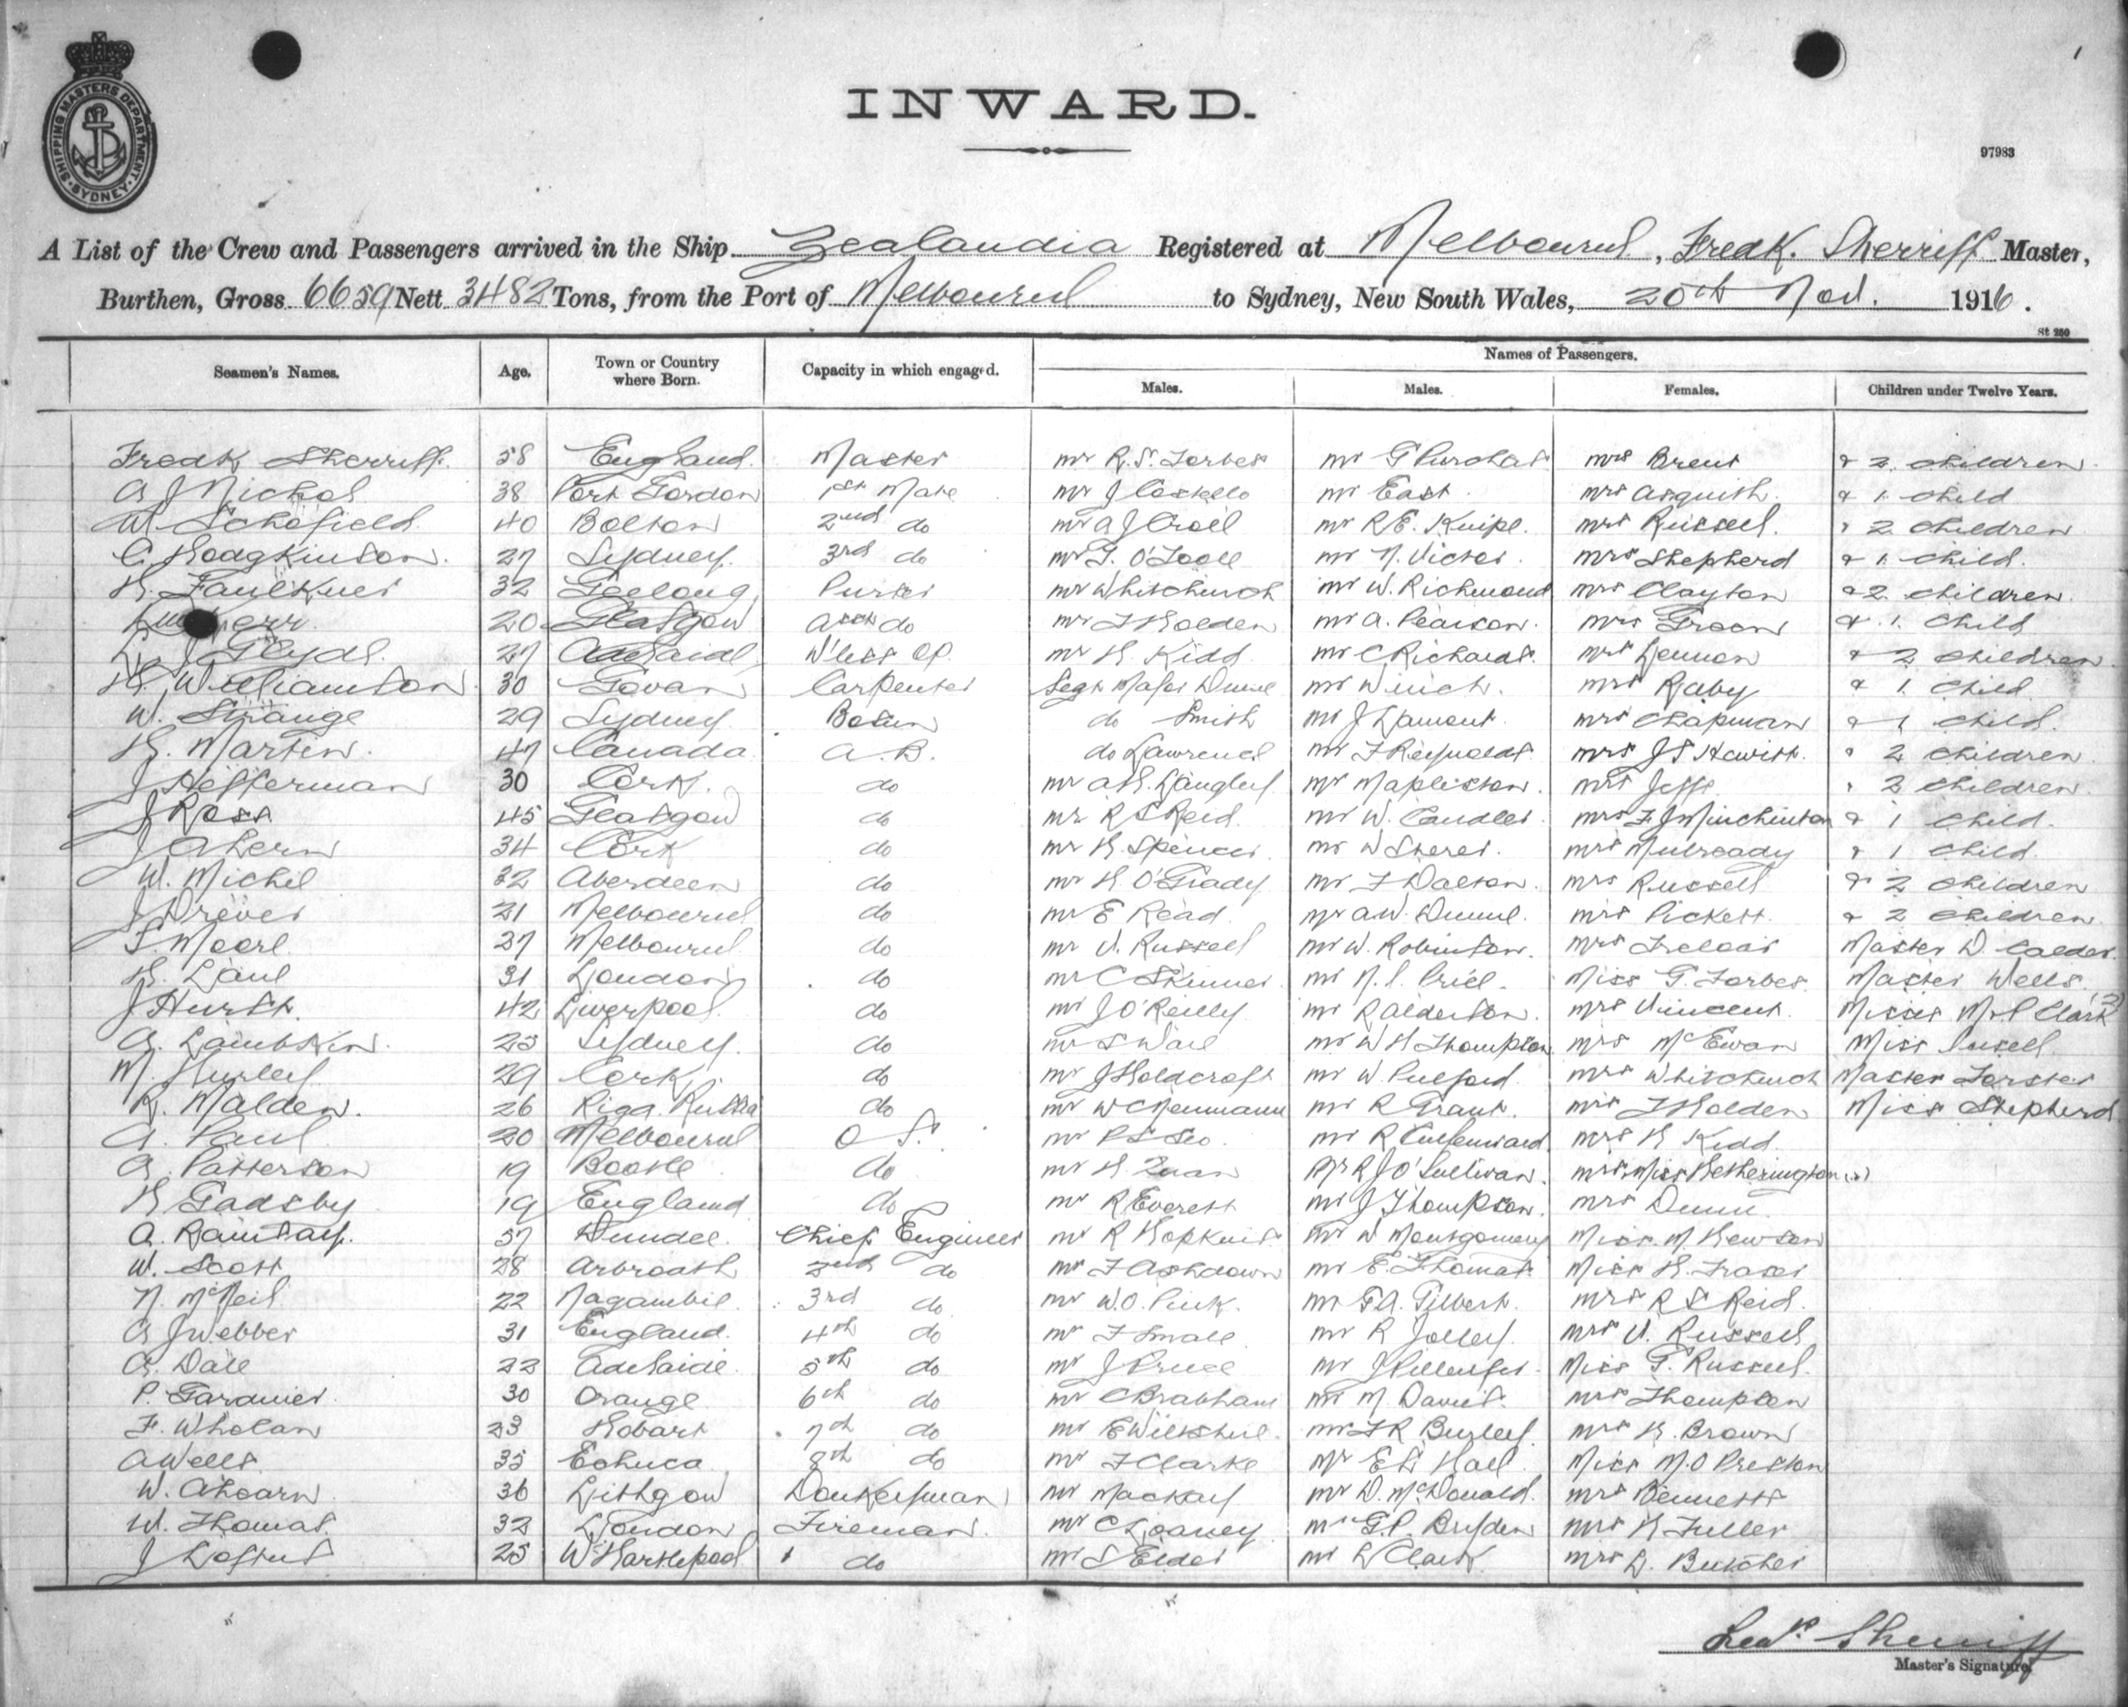 SHIPPING MASTERS DEPARTMENT · SYDNEY ·
1
INWARD.
97983
A List of the Crew and Passengers arrived in the Ship Zealandia Registered at Melbourne, Fredk. Sherriff Master,
Burthen, Gross 6659 Nett 3482 Tons, from the Port of Melbourne to Sydney, New South Wales, 20th Nov. 1916.
St 250
Names of Passengers.
Seamen's Names. Age. Town or Country where Born. Capacity in which engaged. Males. Males. Females. Children under Twelve Years.
Fredk Sherriff. 58 England. Master Mr R. S. Forbes Mr G Purchas Mrs Brent & 2 children.
A J Nichol 38 Port Gordon 1st Mate Mr J Costello Mr East Mrs Asquith. & 1 child
W. Schofield 40 Bolton 2nd do Mr A J Croll Mr R E. Knipe. Mrs Russell. & 2 children
C Hodgkinson. 27 Sydney. 3rd do Mr T. O'Toole Mr N. Victor. Mrs Shepherd & 1 child.
H. Faulkner 32 Geelong Purser Mr Whitchurch Mr W. Richmond Mrs Clayton & 2 children
20 Glasgow Asst do Mr F Holden Mr A. Pearson. Mrs Groom & 1 child
J Clyde. 27 Adelaide W'less Op. Mr H. Kidd Mr C Richards. Mrs Lennon & 2 children
H. Williamson 30 Govan Carpenter Segt Major Dunne Mr Winch. Mrs Raby & 1 child
W. Strange 29 Sydney. Bosun do Smith Mr J Lamont. Mrs Chapman & 1 child.
H. Martin. 47 Canada A. B. do Lawrence Mr F Reynolds Mrs J S Hewitt. & 2 children
J Hefferman 30 Cork. do Mr A H. Langley. Mr Mapleston. Mrs & 2 children
J Ross 45 Glasgow do Mr R S Reid. Mr W. Candler. Mrs F J Minchinton & 1 child.
J Ahern 34 Cork do Mr H. Spencer. Mr W Sherer. Mrs Mulready & 1 child.
W. Michie 32 Aberdeen do Mr H O'Grady Mr F Dalton. Mrs Russell & 2 children
J Drever 21 Melbourne do Mr E Read. Mr A W. Dunne. Mrs Pickett. & 2 children
S. Moore 37 Melbourne. do Mr V. Russell Mr W. Robinson. Mrs Master D Calder.
H. Lane 31 London do Mr C Skinner. Mr N. S. Price. Miss G. Forbes. Master Wells.
J Hurst. 42 Liverpool. do Mr J O'Reilly Mr R Alderson. Mrs Vincent. Misses M & P Clark (2)
A. Lambkin. 23 Sydney. do Mr S Mr W H Thompson Mrs McEwan Miss
M. Hurley 29 Cork. do Mr J Holdcroft Mr W. Pulford. Mrs Whitchurch Master Forster
R. Malden. 26 Riga. Russia do Mr W C Neumann Mr R Grant. Mrs F Holden Miss Shepherd
A. Paul 20 Melbourne O S. Mr P S Mr R Mrs H Kidd
A. Patterson 19 Bootle do Mr H. Mr R J O'Sullivan. Mrs & Miss Hetherington (2)
H Gadsby 19 England do Mr R Everett Mr J Thompson. Mrs Dunn.
A. Ramsay. 57 Dundee. Chief Engineer Mr R Hopkins. Mr W Montgomery Miss M Hewson
W. Scott 28 Arbroath 2nd do Mr F Ashdown Mr E. Thomas Miss H. Fraser
N. McNeil 22 Nagambie. 3rd do Mr W. O. Pink. Mr F A. Gilbert. Mrs R S Reid.
A J Webber 31 England. 4th do Mr F Small Mr R Jolley. Mrs V. Russell
A. Dale 22 Adelaide. 5th do Mr J Price Mr J Miss G. Russell.
P. Gardiner. 30 Orange 6th do Mr C Brabham Mr M. Davies. Mrs Thompson
F. Wholan 23 Hobart 7th do Mr E Wiltshire. Mr F R Burley. Mrs H. Brown
A Wells 35 Echuca 8th do Mr F Clarke Mr E L Hall. Miss M. O Preston
W. Ahearn 36 Lithgow Donkeyman Mr Mackay Mr D. McDonald. Mrs Bennetts
W. Thomas. 32 London Fireman. Mr C Looney Mr G. P. Bryden Mrs H Fuller
J Loftus 25 W Hartlepool do Mr S Elder Mr L Clark Mrs L. Butcher
Fredk Sherriff
Master's Signature.